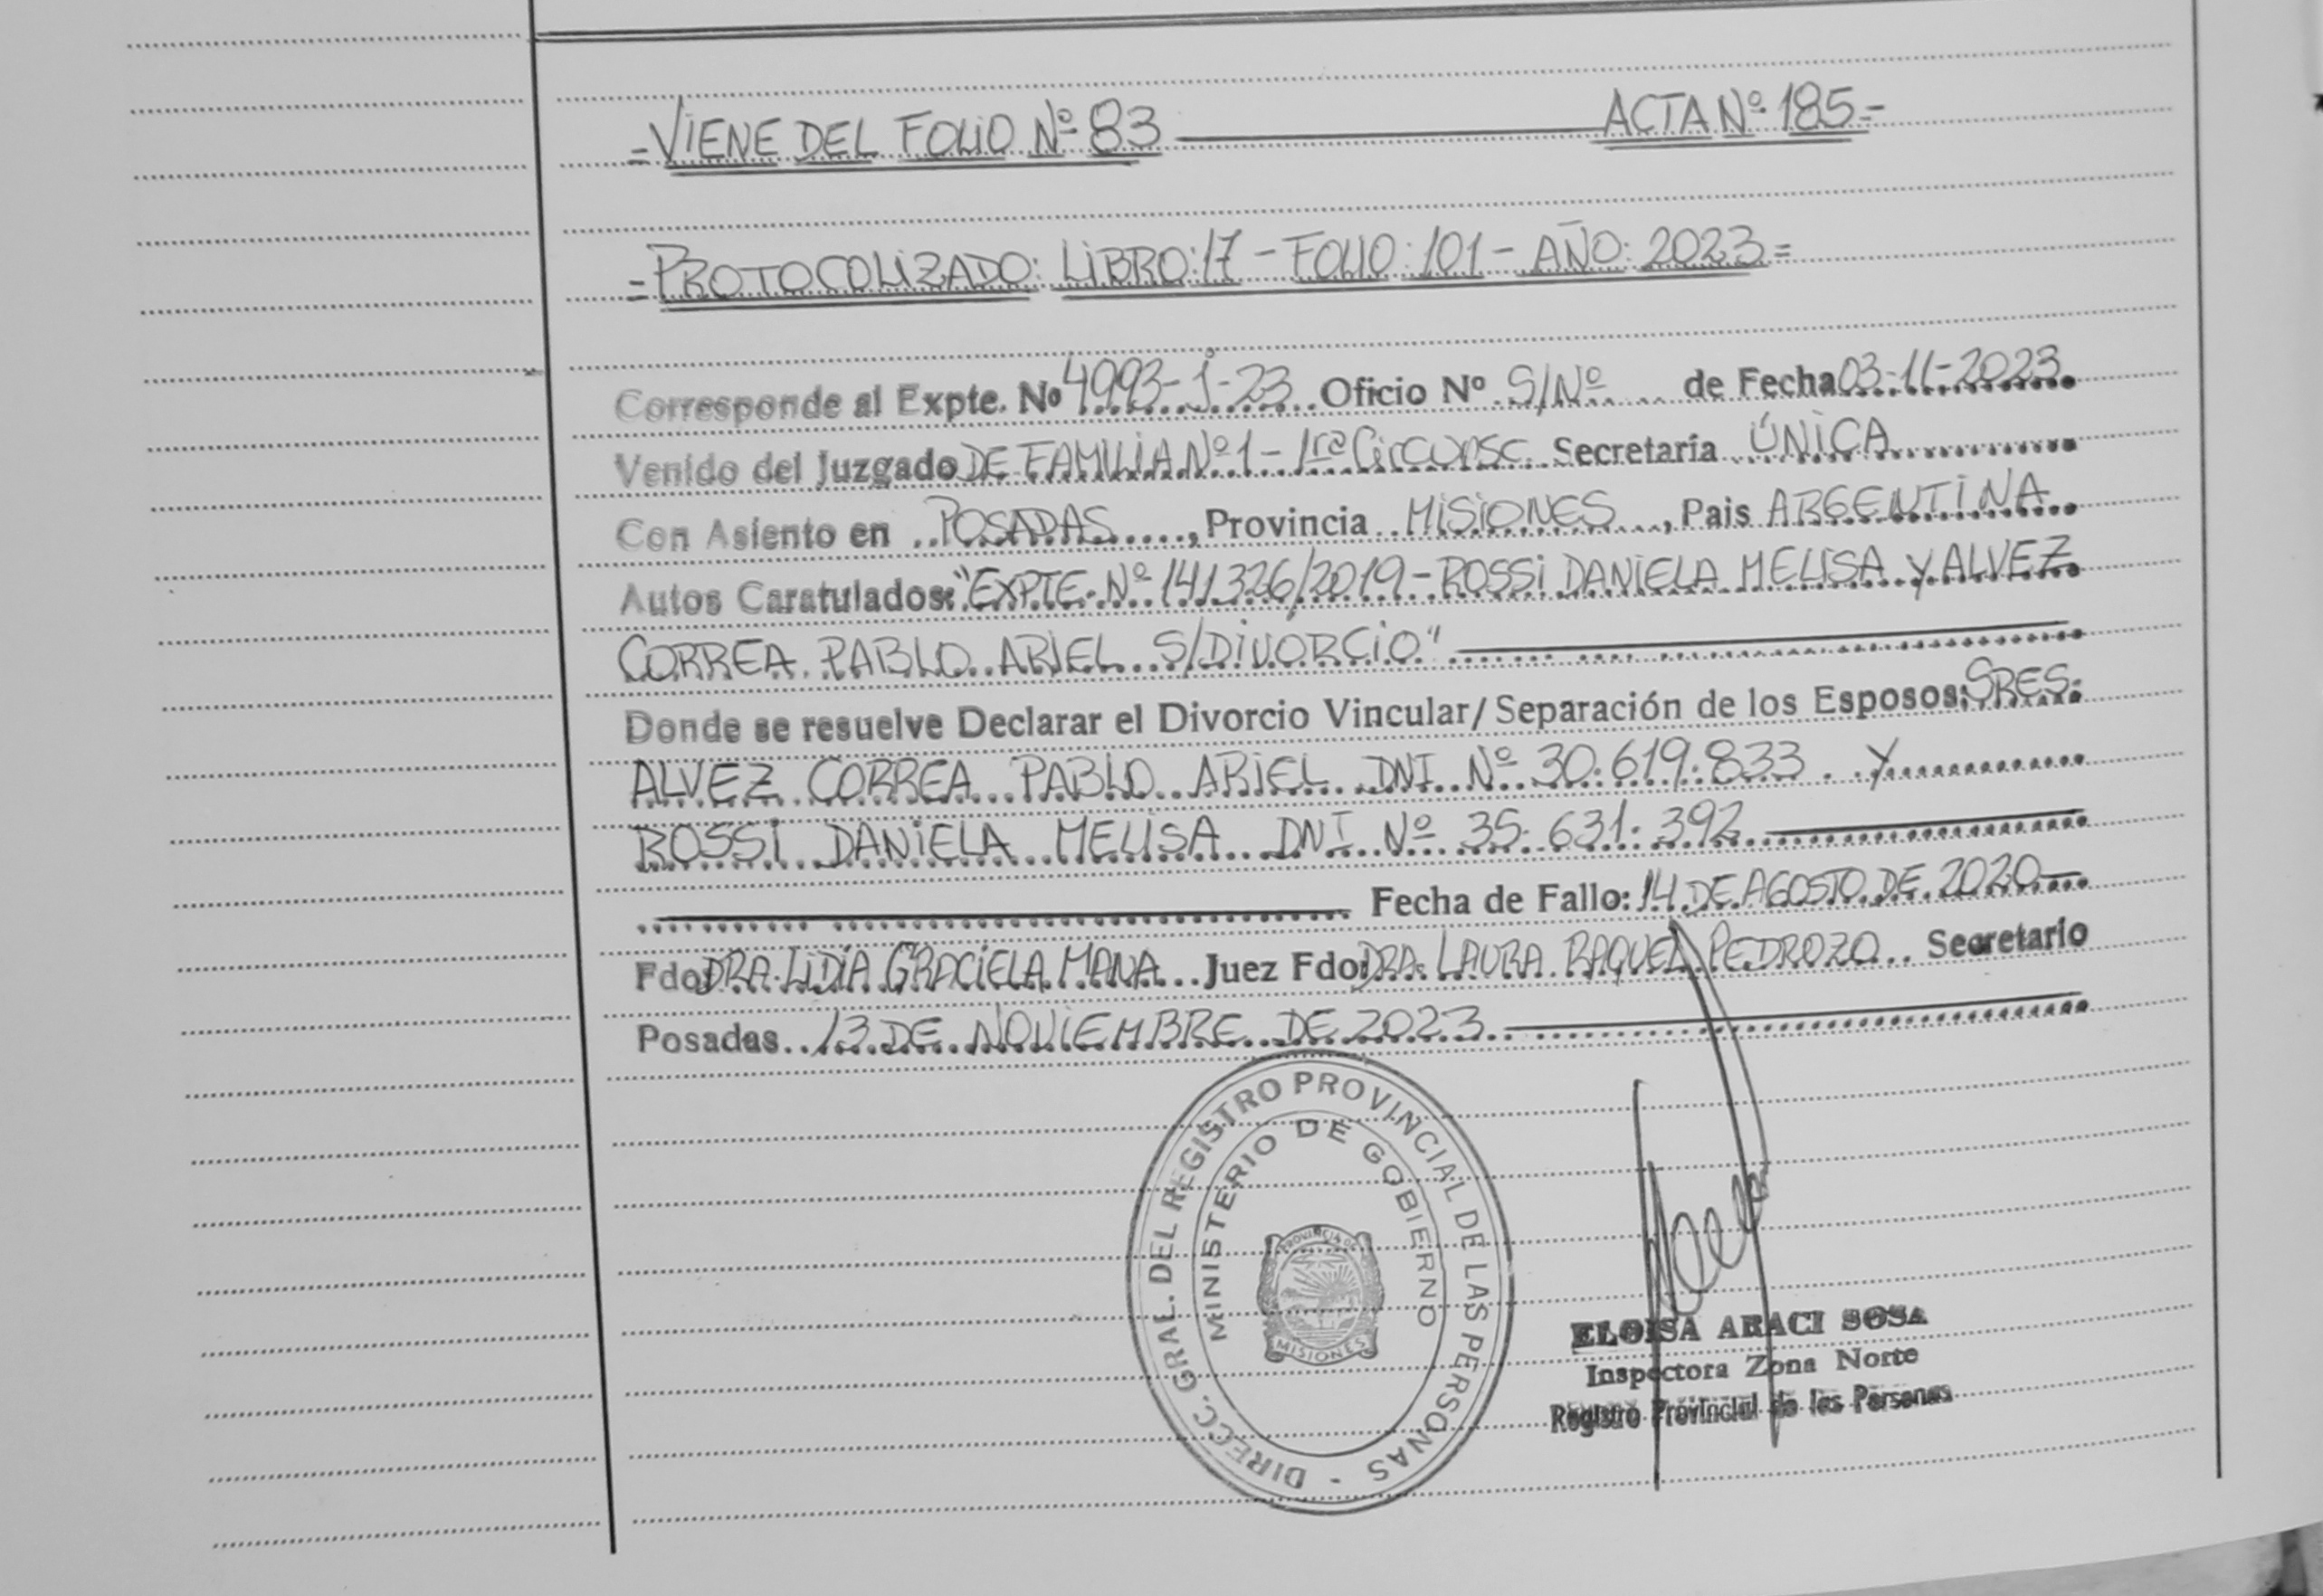 =VIENE DEL FOLIO Nº 83 ACTA Nº 185=
=PROTOCOLIZADO: LIBRO:17 - FOLIO:101 - AÑO: 2023=
Corresponde al Expte. Nº 4993-J-23 Oficio Nº S/Nº de Fecha 03-11-2023
Venido del Juzgado DE FAMILIA Nº 1 - 1ra Circunsc. Secretaría ÚNICA
Con Asiento en POSADAS, Provincia MISIONES, Pais ARGENTINA
Autos Caratulados: "EXPTE. Nº 141326/2019 - ROSSI DANIELA MELISA Y ALVEZ
CORREA PABLO ARIEL S/DIVORCIO"
Donde se resuelve Declarar el Divorcio Vincular/Separación de los Esposos: SRES.
ALVEZ CORREA PABLO ARIEL DNI Nº 30.619.833 Y
ROSSI DANIELA MELISA DNI Nº 35.631.392
Fecha de Fallo: 14 DE AGOSTO DE 2020
Fdo: DRA. LIDIA GRACIELA MANA Juez Fdo: DRA. LAURA RAQUEL PEDROZO Secretario
Posadas 13 DE NOVIEMBRE DE 2023
DIRECC. GRAL. DEL REGISTRO PROVINCIAL DE LAS PERSONAS -
MINISTERIO DE GOBIERNO
PROVINCIA DE
MISIONES
ELOISA ARACI SOSA
Inspectora Zona Norte
Registro Provincial de las Personas